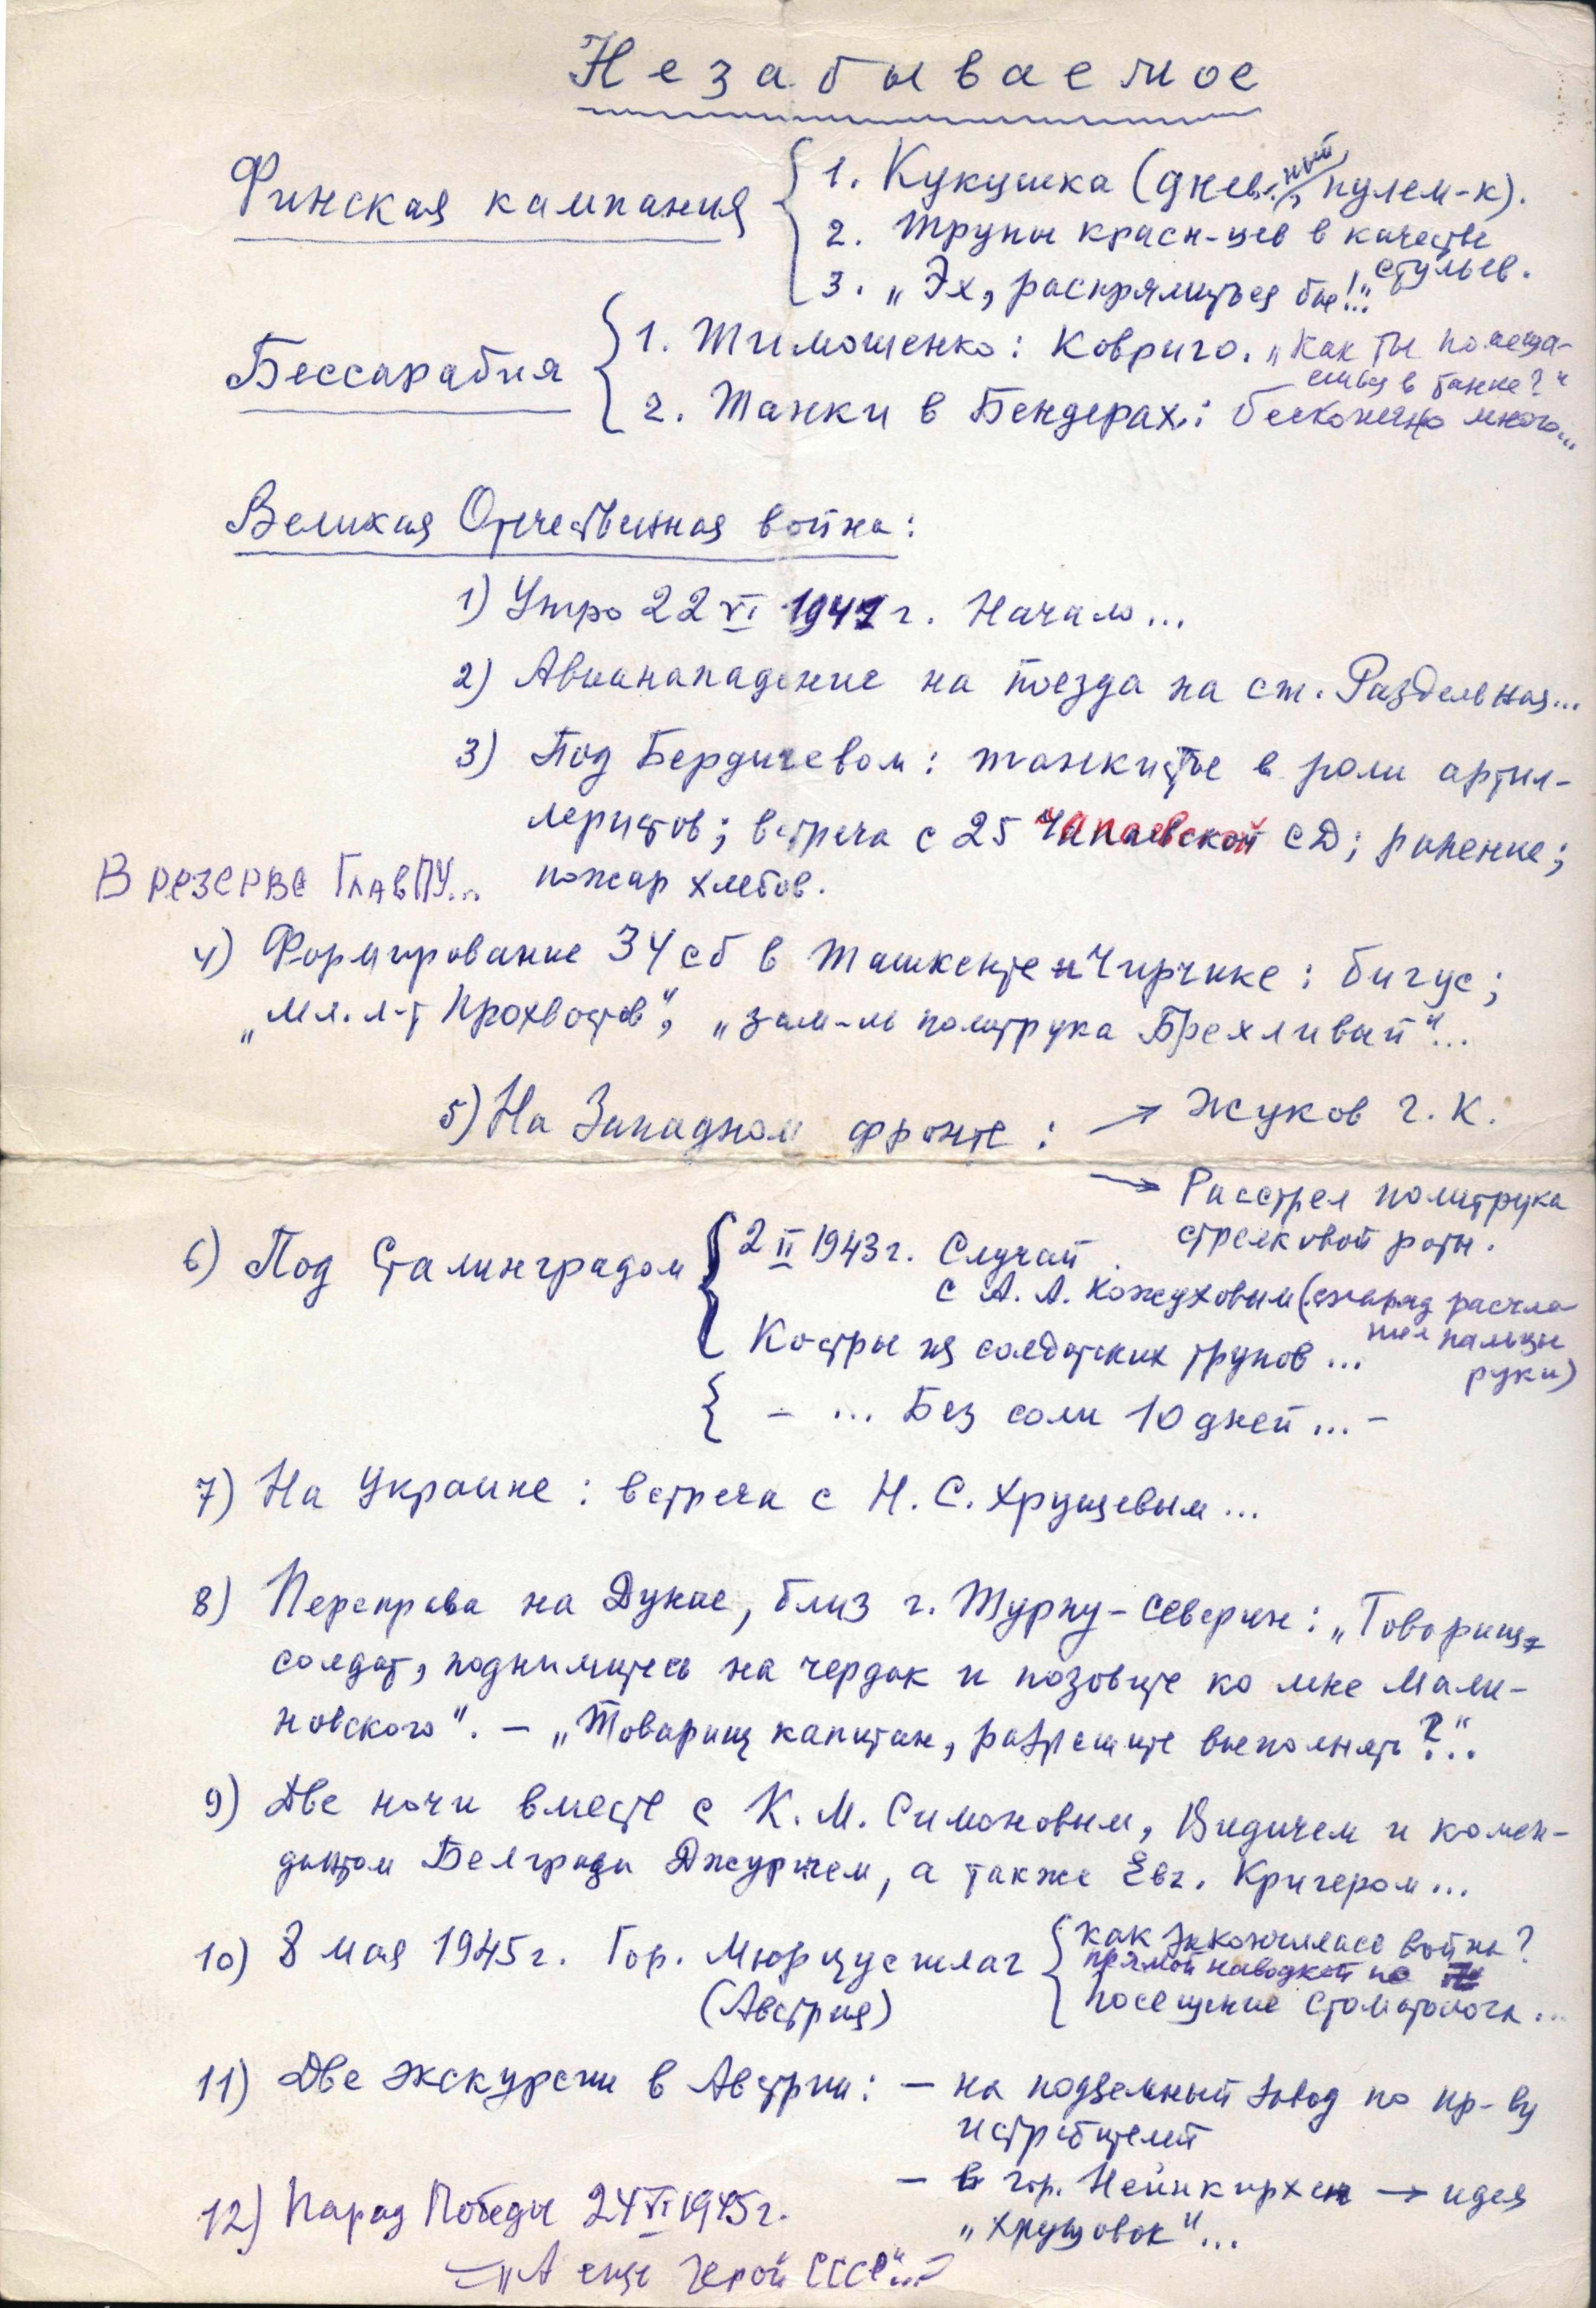 Незабываемое
Финская кампания
1. Кукушка (днев-ный пулем-к).
2. Трупы красн-цев в качестве
стульев.
3. „Эх, распрямиться бы!.."
Бессарабия
1. Тимошенко: Ковриго. „Как ты помеща-
ешься в танке?"
2. Танки в Бендерах: бесконечно много...
Великая Отечественная война:
1) Утро 22 VI 1941 г. Начало...
2) Авианападение на поезда на ст. Раздельная...
3) Под Бердичевом: танкисты в роли артил-
леристов; встреча с 25 Чапаевской СД; ранение;
пожар хлебов.
В резерве ГлавПУ...
4) Формирование 34 сб в Ташкенте и Чирчике: бигус;
„мл. л-т Прохвостов", „зам-ль политрука Брехливый"...
5) На Западном фронте: → Жуков Г. К.
→ Расстрел политрука
стрелковой роты.
6) Под Сталинградом
2 II 1943 г. Случай
с А. А. Кожуховым (снаряд
пальцы
руки)
Костры из солдатских трупов...
– ... Без соли 10 дней ... –
7) На Украине: встреча с Н. С. Хрущевым...
8) Переправа на Дунае, близ г. Турну-Северин: „Товарищ
солдат, поднимитесь на чердак и позовите ко мне Мали-
новского". – „Товарищ капитан, разрешите выполнять?"...
9) Две ночи вместе с К. М. Симоновым, Видичем и комен-
дантом Белграда Джуричем, а также Евг. Кригером...
10) 8 мая 1945 г. Гор. Мюрццушлаг
(Австрия)
Как закончилась война?
прямой наводкой по
Посещение стоматолога...
11) Две экскурсии в Австрии: – на подземный завод по пр-ву
истребителей
– в гор. Нейнкирхен → идея
„хрущовок"...
12) Парад Победы 24 VI 1945 г.
– „А еще Герой СССР"... –